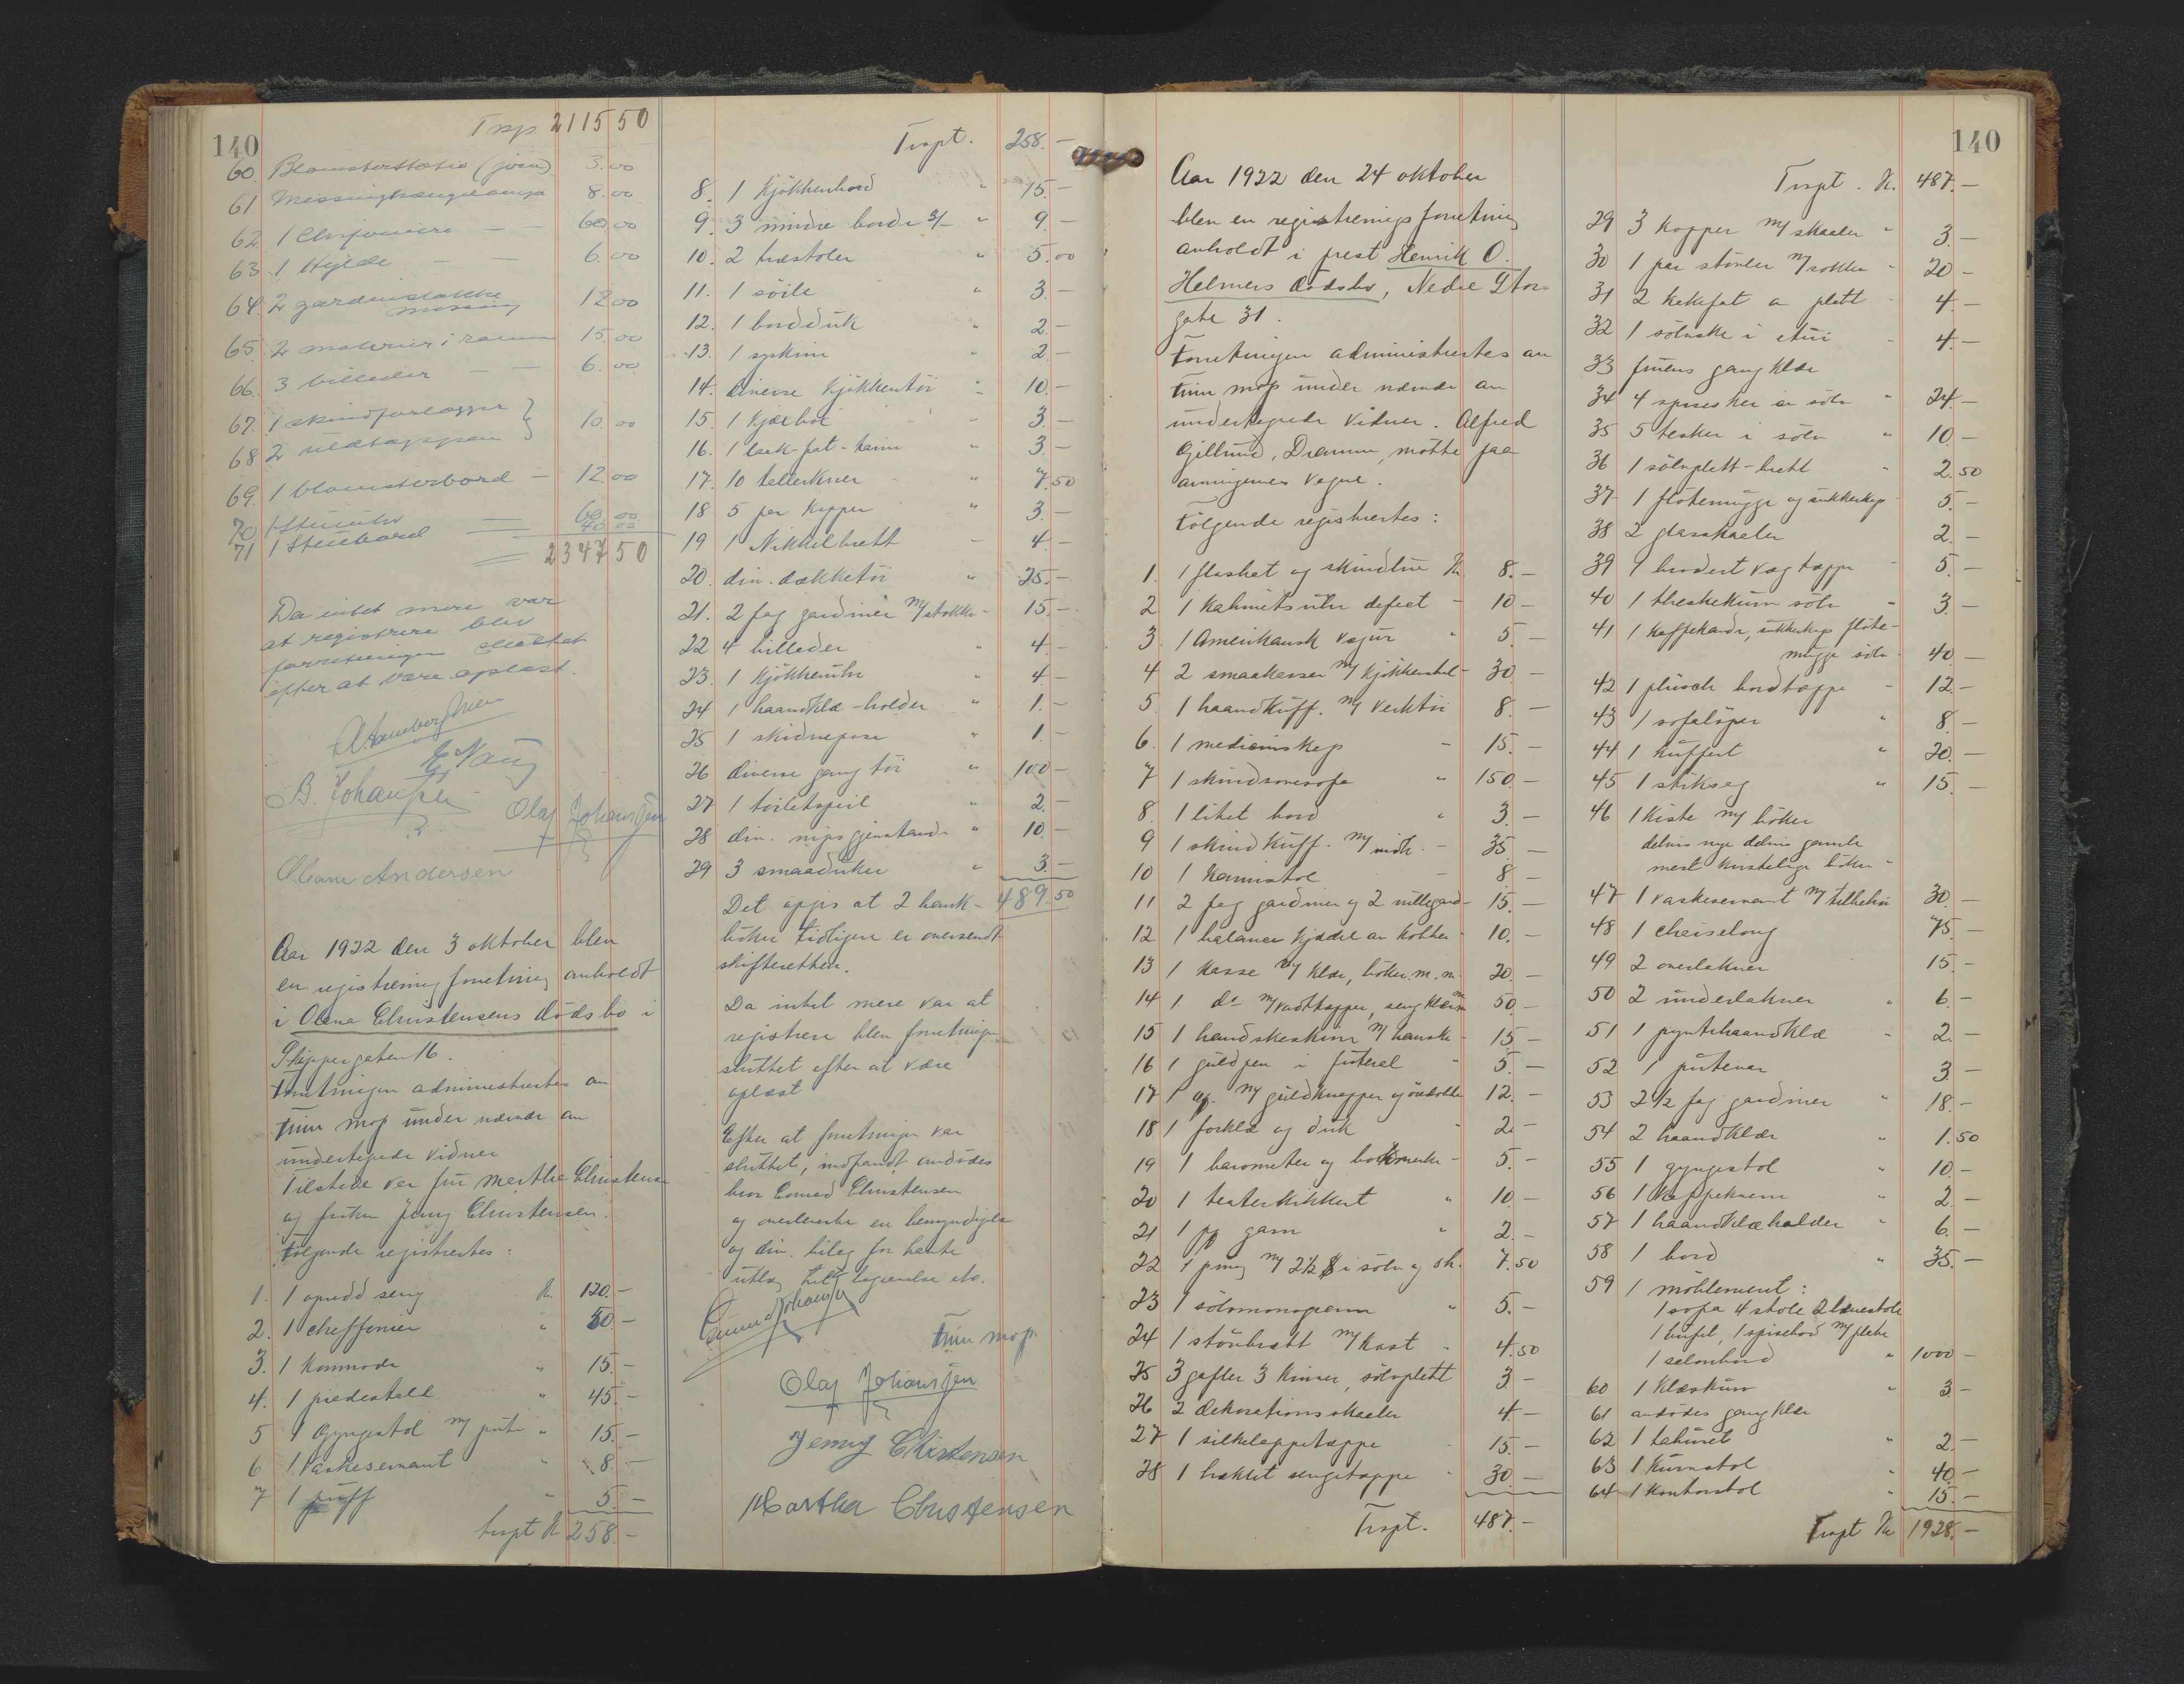 140
Trsp. 2115 50
60. Blomsterstativ (jern) 3.00
61 Messinghængelampe 8.00
62 1 Chifoniere — — 60.00
63 1 Hylde — — 6.00
64 2 gardinstokke 12 00
messing
65. 2 malerier i ramm 15.00
66. 3 billeder — — 6.00
67. 1 skindforlægger }
68 2 } 10.00
69. 1 blomsterbord — 12 00
70 1 Stueuhr — 60.00
71 1 Stuebord 40 00
2347 50
Da intet mere var
at registrere blev
forretningen sluttet
efter at være oplæst.
E Naug
B. Johansen
Olaf Johansen
Oleane Andersen
Aar 1922 den 3 oktober blev
en registrering forretning avholdt
i Olena Christensens dödsbo i
Skippergaten 16.
Forretningen administrertes av
Finn Mop under nærvær av
undertegnede vidner
Tilstede var fru Marthe Christensen
og frøken Jenny Christensen.
Følgende registrertes:
1. 1 opredd seng Kr. 120.—
2. 1 cheffonier " 50.—
3. 1 Kommode " 15.—
4. 1 piedestall " 45.—
5 1 Gyngestol m/ pute " 15.—
6 1 Vaskeservant " 8.—
7 1 puff " 5.—
trspt Kr 258.—
Trspt. 258.—
8. 1 Kjökkenbord " 15.—
9. 3 mindre borde 3/- " 9.—
10. 2 træstoler " 5.00
11. 1 söile " 3.—
12. 1 bordduk " 2.—
13. 1 syskrin " 2.—
14. diverse Kjökkentöi " 10.—
15. 1 Kjærbol " 3.—
16. 1 lask-fat-karin " 3.—
17. 10 tallerkner " 7.50
18 5 par Kopper " 3.—
19 1 Nikkelbrett - 4.—
20. div. dækketöi " 25.—
21. 2 fag gardiner m/stokke - 15.—
22 4 billeder " 4.—
23. 1 Kjökkenuhr " 4.—
24 1 haandklæ-holder " 1.—
25 1 skidnepose " 1.—
26 diverse gangtöi " 100—
27 1 toiletspeil " 2.—
28 div. nipsgjenstande " 10.—
29 3 smaaduker " 3.—
489.50
Det oppgis at 2 bank-
böker tidligere er oversendt
skifteretten.
Da intet mere var at
registrere blev forretningen
sluttet efter at være
oplæst
Efter at forretningen var
sluttet, indfandt avdödes
bror Conrad Christensen
og overleverte en bemyndigelse
og div. bilag for havte
utlæg til begravelse etc.
Gunnar Johansen
Finn Mop.
Olaf Johansen
Jenny Christensen
Martha Christensen
140
Aar 1922 den 24 oktober
blev en registreringsforretning
avholdt i prest Henrik O.
Helmers dödsbo, Nedre Stor-
gate 31.
Forretningen administrertes av
Finn Mop under nærvær av
undertegnede vidner. Alfred
Gjellrud, Drammen, mötte paa
arvingernes vegne.
Fölgende registrertes:
1. 1 flosshat og skindlue Kr. 8.—
2 1 Kabinetsuhr defect - 10—
3. 1 Amerikansk vægur " 5.—
4 2 smaakasser m/ Kjökkenstel - 30—
5. 1 haandkuff. m/ Verktöi 8.—
6. 1 medicinskap - 15.—
7 1 skindsovesofa " 150.—
8. 1 litet bord " 3.—
9 1 skindkuff. m/ indh. - 35.—
10 1 Kurvstol - 8—
11 2 fag gardiner og 2 rullegard - 15.—
12 1 balance kjedel av kobber - 10.—
13 1 Kasse m/ klær, böker m.m. 20—
14 1 do m/ vadttepper, sengklær m.m 50.—
15 1 handskeskrin m/ hansk - 15—
16 1 guldpen i futeral - 5.—
17 1 m/ guldknapper og 12.—
18 1 forklæ og duk - 2.—
19 1 barometer og bokmerke - 5.—
20 1 teaterkikkert " 10.—
21 1 pp garn " 2.—
22 1 pung m/ 2 1/2 $ i sölv og sk. 7.50
23 1 sölvmonogram " 5.—
24 1 stövbrett m/ kost - 4.50
25 3 gafler 3 kniver, sölvplett 3.—
26 2 dekorationsskaaler 4.—
27 1 silkelappeteppe - 15.—
28 1 heklet sengeteppe - 30.—
Trspt. 487.—
Trspt. Kr. 487.—
29 3 Kopper m/ skaaler " 3.—
30 1 par stövler m/ sokker - 20—
31 2 kakefat av plett - 4.—
32 1 sölvske i etui - 4.—
33 fruens gangklær
34 4 spiseskeer av sölv " 24.—
35 5 tesker i sölv " 10.—
36 1 sölvplett-brett " 2.50
37 1 flötemugge og sukkerkop 5.—
38 2 glasskaaler 2.—
39 1 brodert vægteppe - 5.—
40 1 theskekurv sölv " 3—
41 1 kaffekande, sukkerkop flöte-
mugge sölv - 40.—
42 1 plüsch bordteppe - 12.—
43 1 sofalöper " 8.—
44 1 Kuffert " 20.—
45 1 stiksag " 15.—
46 1 Kiste m/ böker
delvis nye delvis gamle
mest kristelige böker -
47 1 vaskeservant m/ tilbehör 30.—
48 1 cheiselong 75.—
49 2 overlakner 15.—
50 2 underlakner " 6.—
51 1 pyntehaandklæ - 2.—
52 1 putevar 3—
53 2 1/2 fag gardiner " 18.—
54 2 haandklær " 1.50
55 1 gyngestol " 10.—
56 1 Kaffekvern " 2.—
57 1 haandklæholder " 6.—
58 1 bord " 35.—
59 1 möblement:
1 sofa 4 stole 2 lænestole
1 bufet, 1 spisebord m/ plate
1 salonbord " 1000—
60 1 Klæskurv " 3—
61 avdödes gangklær
62 1 taburet " 2.—
63 1 Kurvstol " 40.—
64 1 Kontorstol " 15.—
Trspt Kr 1928.—